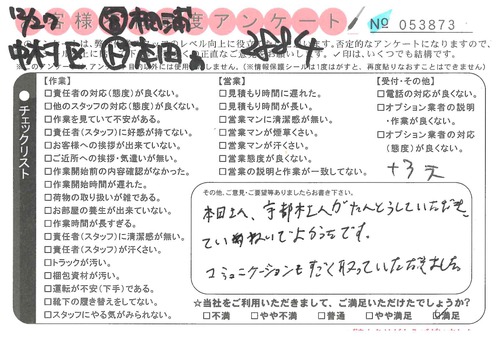 12/27
相浦
お客様満足度アンケート
№ 053873
中村 本田
【作業】
□責任者の対応(態度)が良くない。
□他のスタッフの対応(態度)が良くない。
□作業を見ていて不安がある。
□責任者(スタッフ)に好感が持てない。
□お客様への挨拶が出来ていない。
□ご近所への挨拶・気遣いが無い。
□作業開始前の内容確認がなかった。
□作業開始時間が遅れた。
□荷物の取り扱いが雑である。
□お部屋の養生が出来ていない。
□作業時間が長すぎる。
□責任者(スタッフ)に清潔感が無い。
□責任者(スタッフ)が汗くさい。
□トラックが汚い。
□梱包資材が汚い。
□運転が不安(下手)である。
□靴下の履き替えをしてない。
□スタッフにやる気がみられない。
【営業】
□見積もり時間に遅れた。
□見積もり時間が長い。
□営業マンに清潔感が無い。
□営業マンが煙草くさい。
□営業マンが汗くさい。
□営業態度が良くない。
□営業の説明と作業が一致してない。
【受付・その他】
□電話の対応が良くない。
□オプション業者の説明
・作業が良くない。
□オプション業者の対応
(態度)が良くない。
チェックリスト
その他、ご意見・ご要望等ありましたらお書き下さい。
ていねいでよかったです。
コミュニケーションもすごく取っていただきました。
☆当社をご利用いただきまして、ご満足いただけてしょうか?
□不満 □やや不満 □普通 □やや満足 □満足